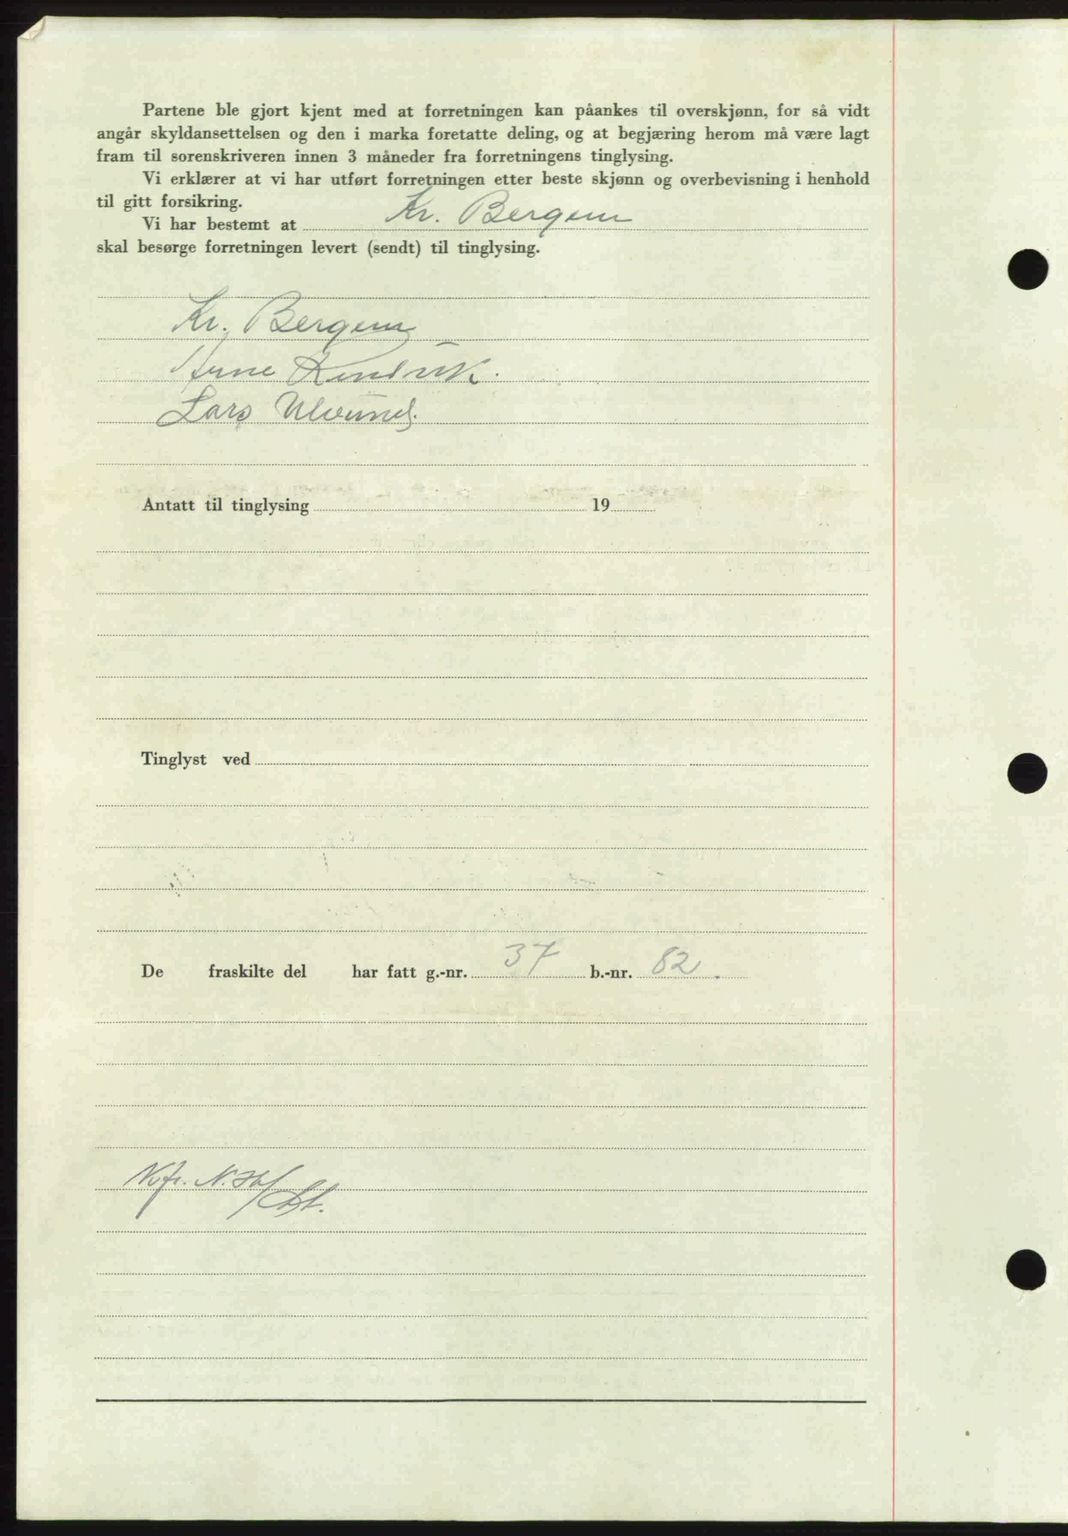 Partene ble gjort kjent med at forretningen kan påankes til overskjønn, for så vidt
angår skyldansettelsen og den i marka foretatte deling, og at begjæring herom må være lagt
fram til sorenskriveren innen 3 måneder fra forretningens tinglysing.
Vi erklærer at vi har utført forretningen etter beste skjønn og overbevisning i henhold
til gitt forsikring.
Vi har bestemt at Kr. Bergem
skal besørge forretningen levert (sendt) til tinglysing.
Kr. Bergem
Arne
Lars Ulvund.
Antatt til tinglysing 19
Tinglyst ved
De fraskilte del har fatt g.-nr. 37 b.-nr. 82.